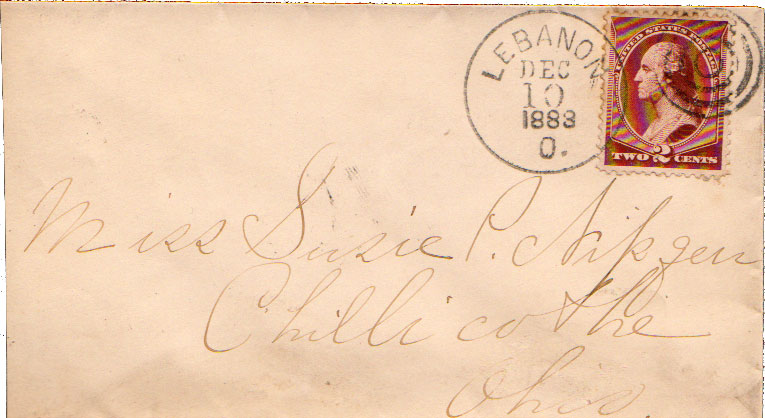 LEBANON
DEC
10
1883
O.
UNITED STATES POSTAGE
TWO 2 CENTS
Miss Susie P. Nipgen
Chillicothe
Ohio